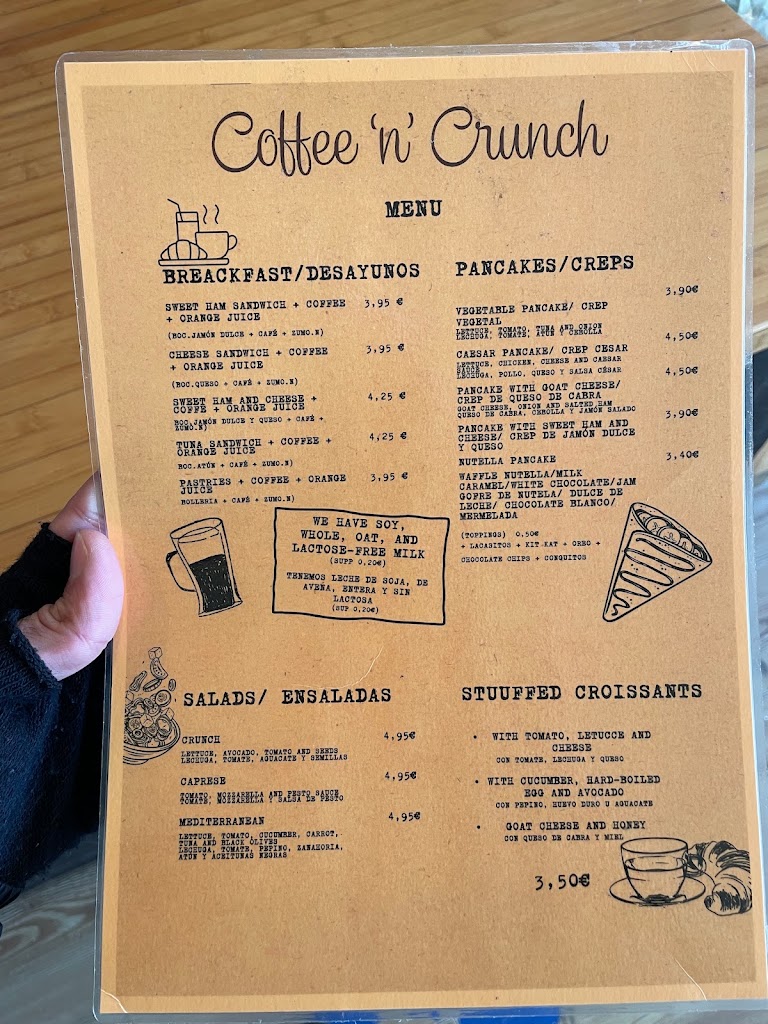 Coffee 'n' Crunch
MENU
BREACKFAST/DESAYUNOS
SWEET HAM SANDWICH + COFFEE 3,95 €
+ ORANGE JUICE
(BOC.JAMÓN DULCE + CAFÉ + ZUMO.N)
CHEESE SANDWICH + COFFEE 3,95 €
+ ORANGE JUICE
(BOC.QUESO + CAFÉ + ZUMO.N)
SWEET HAM AND CHEESE + 4,25 €
COFFE + ORANGE JUICE
BOC.JAMÓN DULCE Y QUESO + CAFÉ +
ZUMO.N)
TUNA SANDWICH + COFFEE + 4,25 €
ORANGE JUICE
BOC.ATÚN + CAFÉ + ZUMO.N)
PASTRIES + COFFEE + ORANGE 3,95 €
JUICE
BOLLERIA + CAFÉ + ZUMO.N)
WE HAVE SOY,
WHOLE, OAT, AND
LACTOSE-FREE MILK
(SUPP 0,20€)
TENEMOS LECHE DE SOJA, DE
AVENA, ENTERA Y SIN
LACTOSA
(SUP 0,20€)
PANCAKES/CREPS
3,90€
VEGETABLE PANCAKE/ CREP
VEGETAL
LETTUCE, TOMATO, TUNA AND ONION
LECHUGA, TOMATE, ATÚN Y CEBOLLA
4,50€
CAESAR PANCAKE/ CREP CESAR
LETTUCE, CHICKEN, CHEESE AND CAESAR
SAUCE
LECHUGA, POLLO, QUESO Y SALSA CÉSAR
4,50€
PANCAKE WITH GOAT CHEESE/
CREP DE QUESO DE CABRA
GOAT CHEESE, ONION AND SALTED HAM
QUESO DE CABRA, CEBOLLA Y JAMÓN SALADO
3,90€
PANCAKE WITH SWEET HAM AND
CHEESE/ CREP DE JAMÓN DULCE
Y QUESO
NUTELLA PANCAKE 3,40€
WAFFLE NUTELLA/MILK
CARAMEL/WHITE CHOCOLATE/JAM
GOFRE DE NUTELA/ DULCE DE
LECHE/ CHOCOLATE BLANCO/
MERMELADA
(TOPPINGS) 0.50€
+ LACASITOS + KIT-KAT + OREO +
CHOCOLATE CHIPS + CONGUITOS
SALADS/ ENSALADAS
CRUNCH 4,95€
LETTUCE, AVOCADO, TOMATO AND SEEDS
LECHUGA, TOMATE, AGUACATE Y SEMILLAS
CAPRESE 4,95€
TOMATO, MOZZARELLA AND PESTO SAUCE
TOMATE, MOZZARELLA Y SALSA DE PESTO
MEDITERRANEAN 4,95€
LETTUCE, TOMATO, CUCUMBER, CARROT,
TUNA AND BLACK OLIVES
LECHUGA, TOMATE, PEPINO, ZANAHORIA,
ATÚN Y ACEITUNAS NEGRAS
STUUFFED CROISSANTS
• WITH TOMATO, LETUCCE AND
CHEESE
CON TOMATE, LECHUGA Y QUESO
• WITH CUCUMBER, HARD-BOILED
EGG AND AVOCADO
CON PEPINO, HUEVO DURO U AGUACATE
• GOAT CHEESE AND HONEY
CON QUESO DE CABRA Y MIEL
3,50€